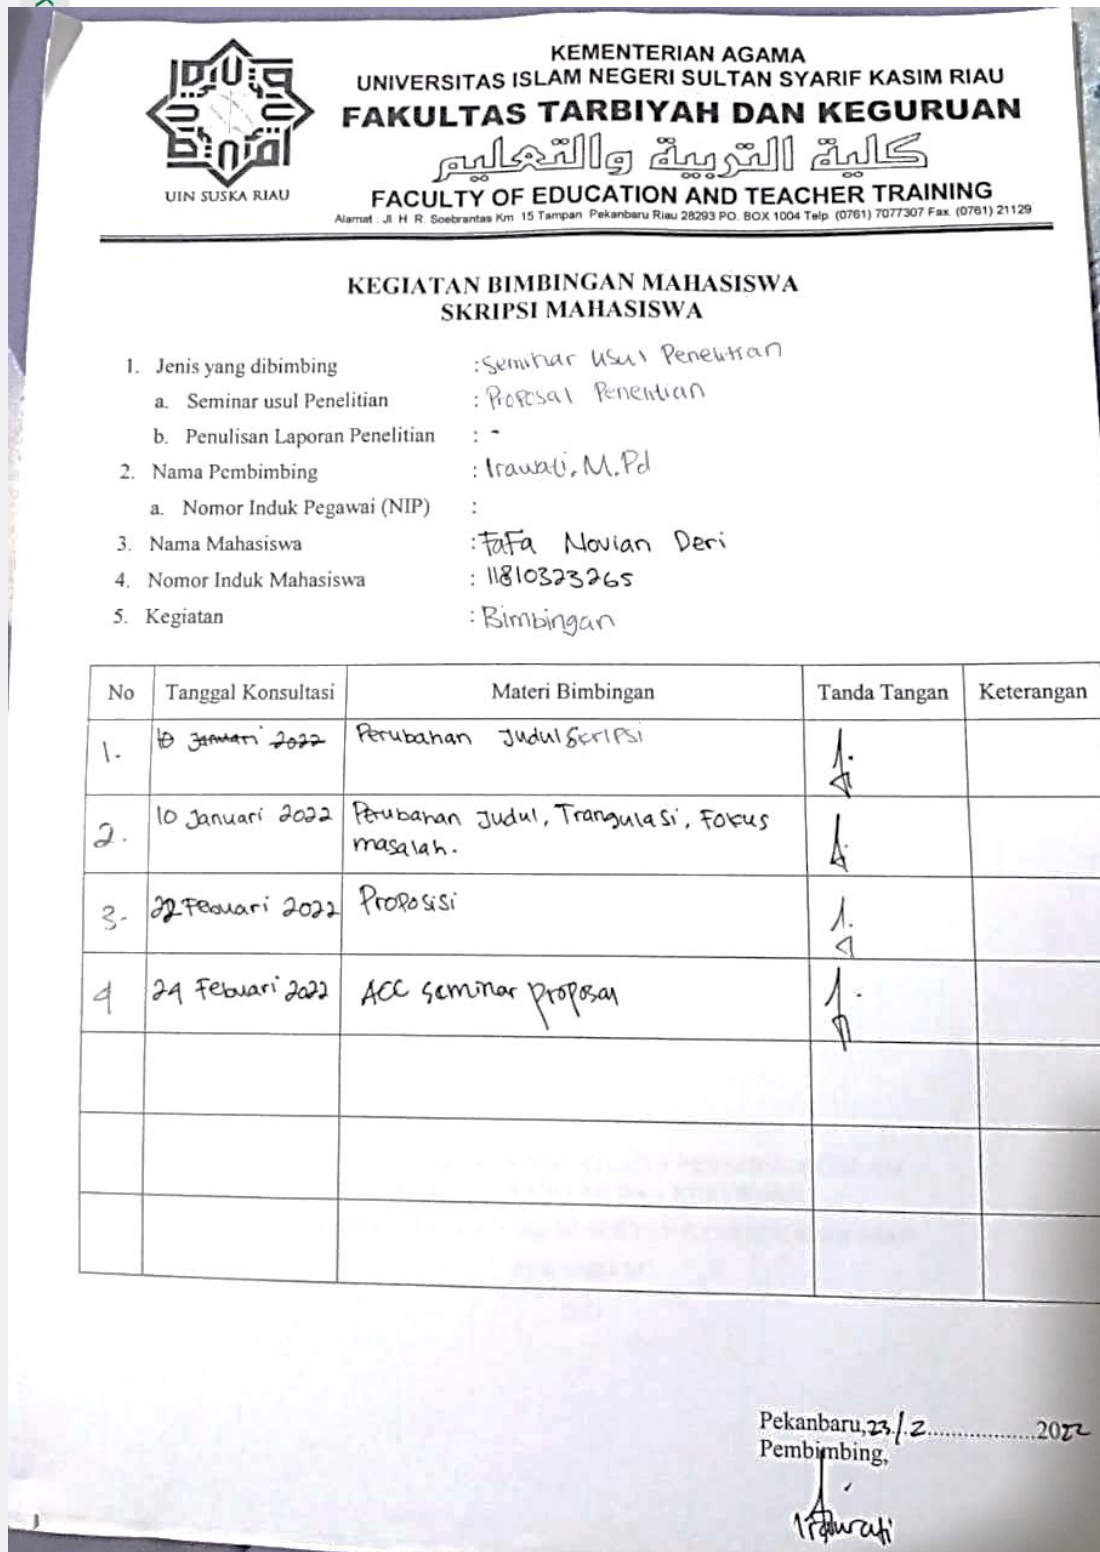 KEMENTERIAN AGAMA
UNIVERSITAS ISLAM NEGERI SULTAN SYARIF KASIM RIAU
FAKULTAS TARBIYAH DAN KEGURUAN
كلية التربية والتعليم
FACULTY OF EDUCATION AND TEACHER TRAINING
Alamat : Jl H. R. Soebrantas Km 15 Tampan Pekanbaru Riau 28293 PO. BOX 1004 Telp (0761) 7077307 Fax. (0761) 21129
UIN SUSKA RIAU
KEGIATAN BIMBINGAN MAHASISWA
SKRIPSI MAHASISWA
1. Jenis yang dibimbing : Seminar usul Penelitian
a. Seminar usul Penelitian : Proposal Penelitian
b. Penulisan Laporan Penelitian : -
2. Nama Pembimbing : Irawati, M.Pd
a. Nomor Induk Pegawai (NIP) :
3. Nama Mahasiswa : FaFa Novian Deri
4. Nomor Induk Mahasiswa : 11810323265
5. Kegiatan : Bimbingan
No Tanggal Konsultasi Materi Bimbingan Tanda Tangan Keterangan
1. 10 Januari 2022 Perubahan Judul Scripsi
2. 10 Januari 2022 Perubahan Judul, Trangulasi, Fokus
masalah.
3. 22 Febuari 2022 Proposisi
4 24 Febuari 2022 ACC Seminar Proposal
Pekanbaru, 23/2..................2022
Pembimbing,
Irawati